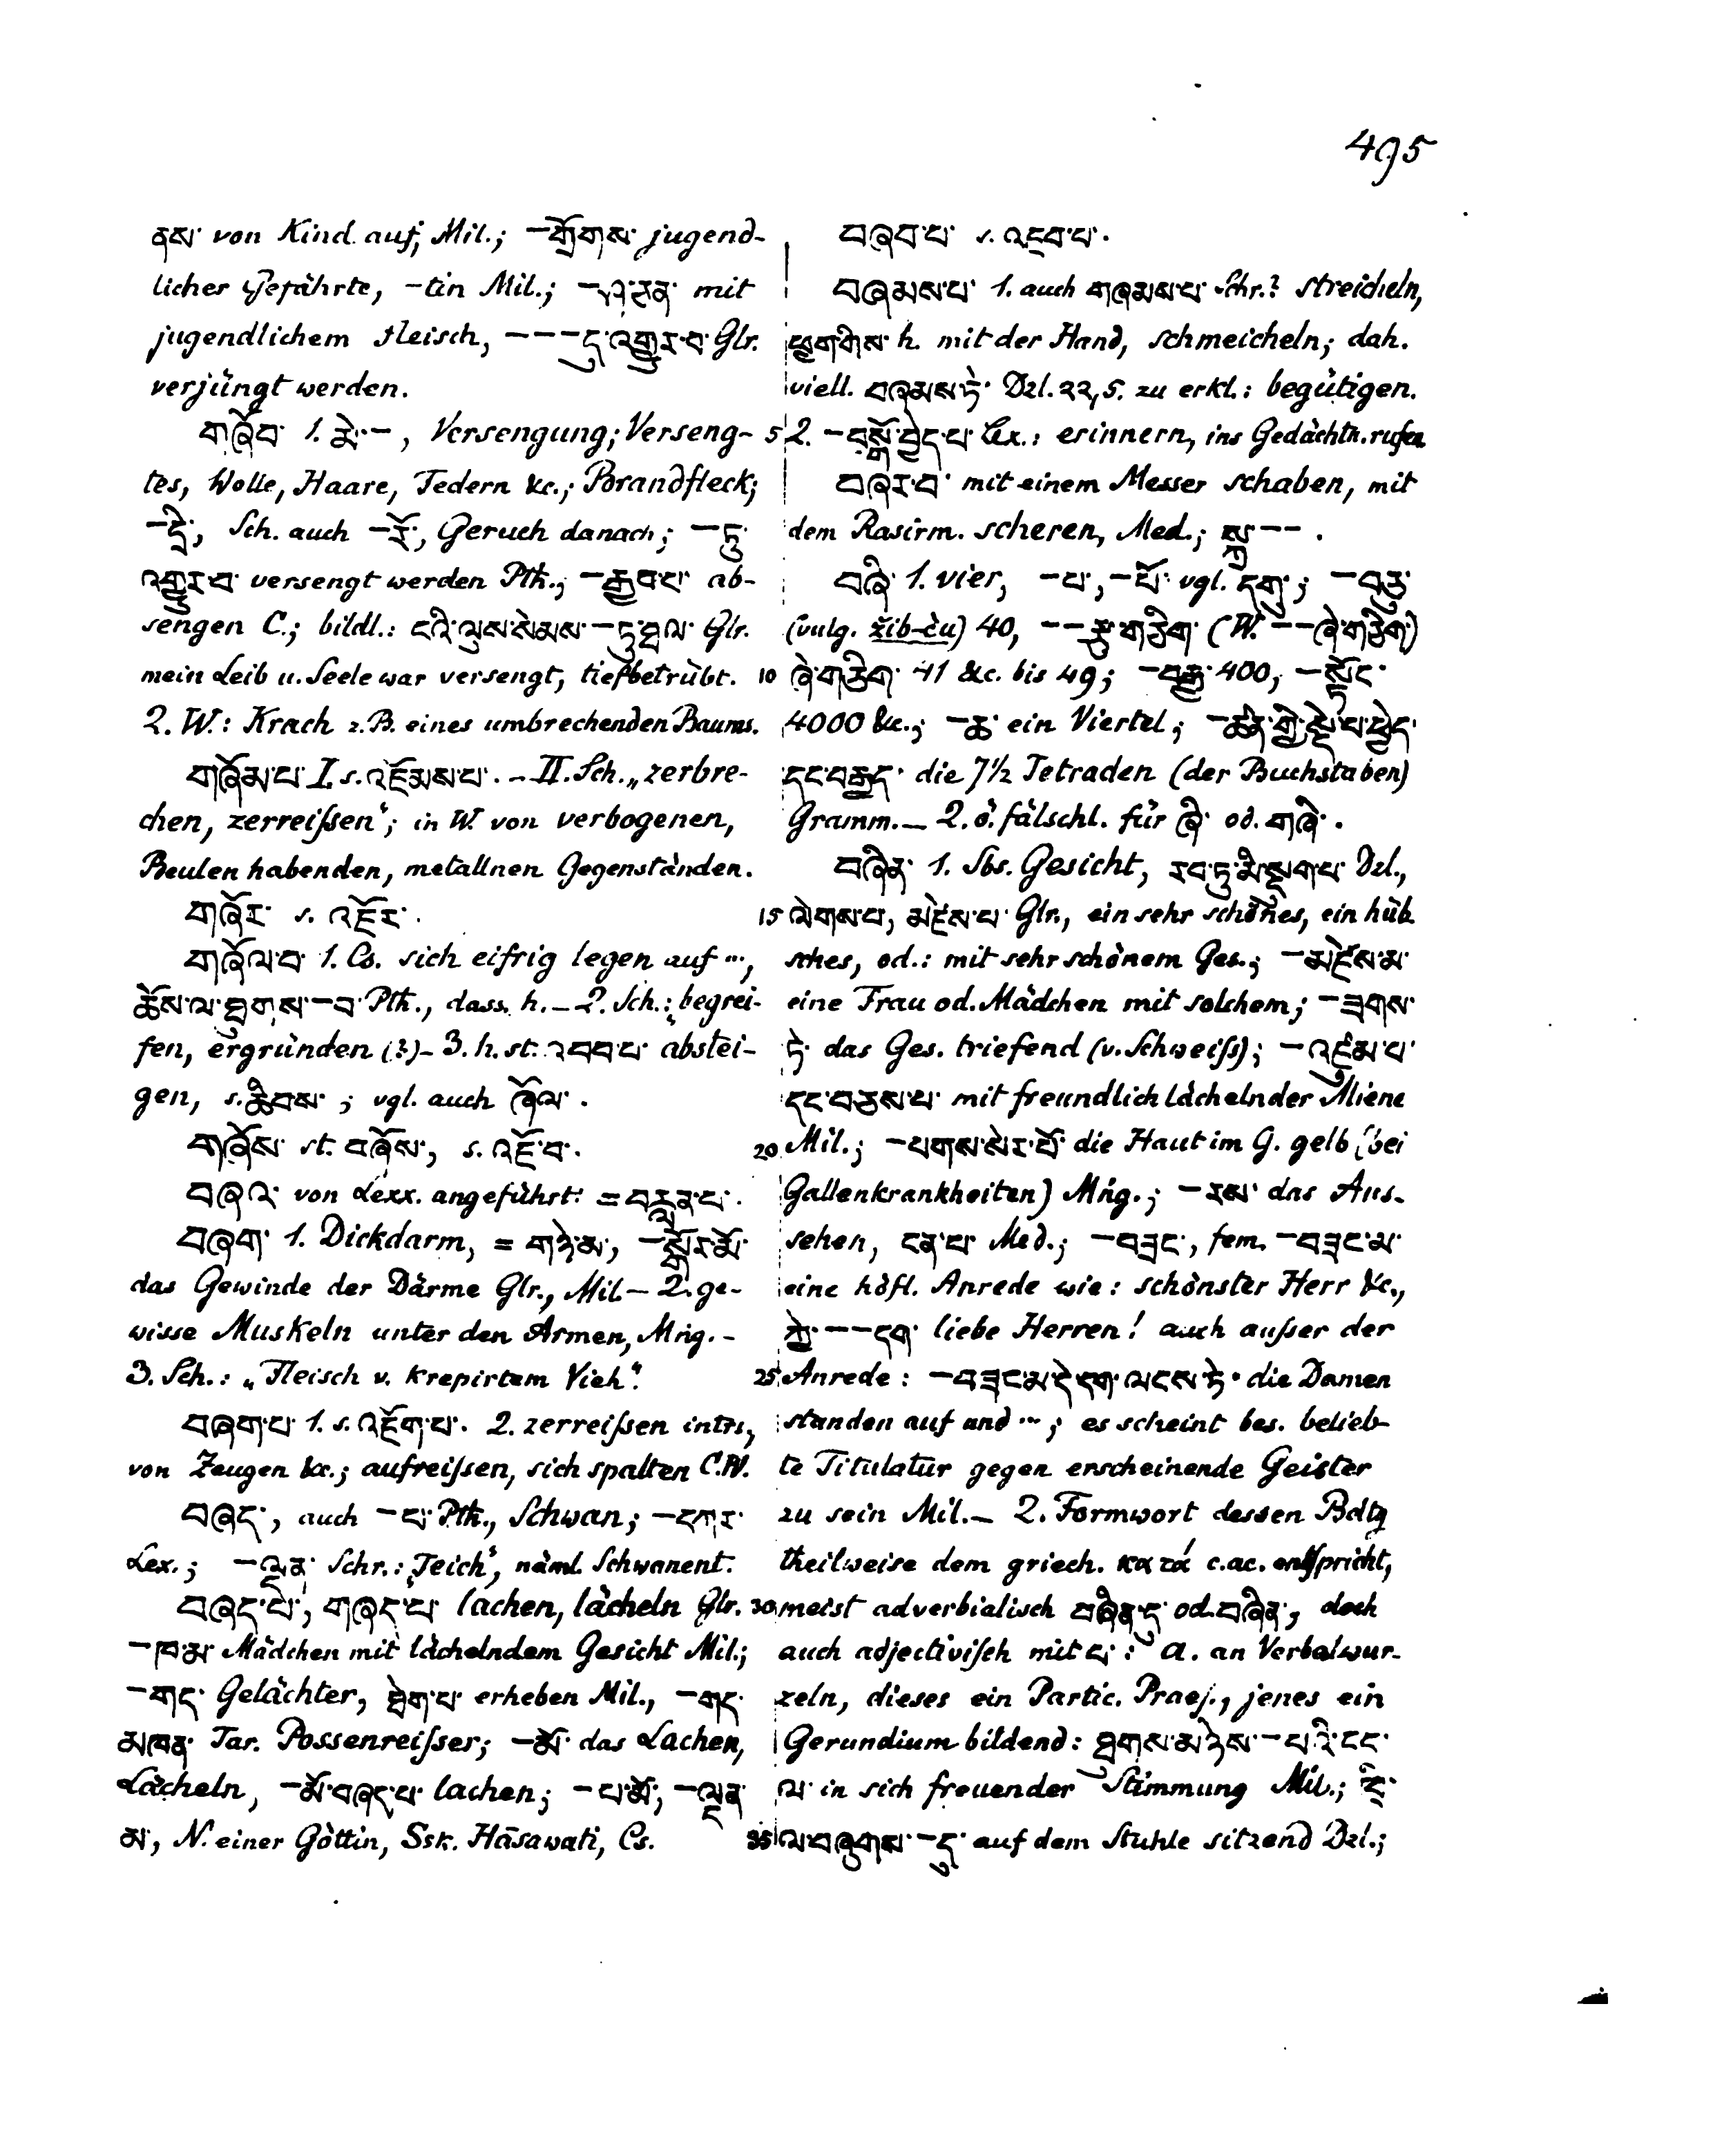 495
ནས་ von Kind auf, Mil.; –གྲོགས་ jugend-
licher Gefährte, –tin Mil.; mit
jugendlichem Fleisch, –––དུ་འགྱུར་བ་ Glr.
verjüngt werden.
གཞོབ་ 1. མེ་–, Versengung; Verseng-
tes, Wolle, Haare, Federn &c.; Brandfleck;
–དྲི, Sch. auch –རོ, Geruch danach; –ཏུ་
འགྱུར་བ་ versengt werden Pth.; ab-
sengen C.; bildl.: ངའི་ལུས་སེམས་–ཏུ་ཐལ་ Glr.
mein Leib u. Seele war versengt, tiefbetrübt.
2. W.: Krach z.B. eines umbrechenden Baums.
གཞོམ་པ་ I. s. འཇོམས་པ་. – II. Sch. „zerbre-
chen, zerreißen“; in W. von verbogenen,
Beulen habenden, metallnen Gegenständen.
གཞོར་ s. འཇོར་.
གཞོལ་བ་ 1. Cs. sich eifrig legen auf …,
ཆོས་ལ་ཐུགས་–བ་ Pth., dass. h. – 2. Sch.: „begrei-
fen, ergründen (?) – 3. h. st. འབབ་པ་ abstei-
gen, s. ཆིབས་; vgl. auch ཞོལ་.
གཞོས་ st. བཞོས་, s. འཇོ་བ་.
བཞའ་ von Lexx. angeführt: = བརླན་པ་.
བཞག་ 1. Dickdarm, = གཉེ་མ་, –སྒོར་མོ་
das Gewinde der Därme Glr., Mil – 2. ge-
wisse Muskeln unter den Armen, Mṅg. –
3. Sch.: „Fleisch v. krepirtem Vieh“.
བཞག་པ་ 1. s. འཇོག་པ་. 2. zerreißen intrs,
von Zeugen &c.; aufreißen, sich spalten C.W.
བཞད་, auch –པ་ Pth., Schwan; –དཀར་
Lex.; –ལྡན་ Schr.: „Teich“, näml. Schwanent.
བཞད་པ་, གཞད་པ་ lachen, lächeln Glr.
–ཁ་མ་ Mädchen mit lächelndem Gesicht Mil.;
–གད་ Gelächter, ཐེག་པ་ erheben Mil., –གད་
མཁན་ Tar. Possenreißer; –མོ་ das Lachen,
Lächeln, –མོ་བཞད་པ་ lachen; –པ་མོ་, –ལྡན་
མ་, N. einer Göttin, Ssk. Hāsawati, Cs.
བཞབ་པ་ s. འཇབ་པ་.
བཞམས་པ་ 1. auch གཞམས་པ་ Schr.? streicheln,
ཕྱག་གིས་ h. mit der Hand, schmeicheln; dah.
viell. བཞམས་ཏེ་ Dzl. ༢༢,5. zu erkl.: begütigen.
5 2. –བསྒོ་བྱེད་པ་ Lex.: erinnern, ins Gedächtn. rufen
བཞར་བ་ mit einem Messer schaben, mit
dem Rasirm. scheren, Med.; སྐྲ་––.
བཞི་ 1. vier, –པ་, –པོ་ vgl. དགུ་; –བཅུ་
(vulg. žib-ču) 40, ––རྩ་གཅིག་ (W. ––ཞེ་གཅིག་)
10 ཞེ་གཅིག་ 41 &c. bis 49; –བརྒྱ་ 400, –སྟོང་
4000 &c.; –ཆ་ ein Viertel; –ཚན་གྱི་སྡེ་པ་ཕྱེད་
དང་བརྒྱད་ die 7½ Tetraden (der Buchstaben)
Gramm. – 2. ö. fälschl. für ཞི་ od. གཞི་.
བཞིན་ 1. Sbs. Gesicht, རབ་ཏུ་མི་སྡུག་པ་ Dzl.,
15 ལེགས་པ་, མཛེས་པ་ Glr., ein sehr schönes, ein hüb
sches, od.: mit sehr schönem Ges.; –མཛེས་མ་
eine Frau od. Mädchen mit solchem; –ཟགས་
ཏེ་ das Ges. triefend (v. Schweiß); –འཛུམ་པ་
དང་བཅས་པ་ mit freundlich lächelnder Miene
20 Mil.; –པགས་སེར་པོ་ die Haut im G. gelb (bei
Gallenkrankheiten) Mṅg.; –རས་ das Aus-
sehen, ངན་པ་ Med.; –བཟང་, fem. –བཟང་མ་
eine höfl. Anrede wie: schönster Herr &c.,
ཀྱེ་––དག་ liebe Herren! auch außer der
25 Anrede: –བཟང་མ་དེ་དག་ལངས་ཏེ་ die Damen
standen auf und …; es scheint bes. belieb-
te Titulatur gegen erscheinende Geister
zu sein Mil. – 2. Formwort dessen Bdtg
theilweise dem griech. κατά c. ac. entspricht,
30 meist adverbialisch བཞིན་དུ་ od. བཞིན་, doch
auch adjectivisch mit པ་: a. an Verbalwur-
zeln, dieses ein Partic. Praes., jenes ein
Gerundium bildend: ཐུགས་མཉེས་–པའི་ངང་
ལ་ in sich freuender Stimmung Mil.; ཁྲི་
35 ལ་བཞུགས་–དུ་ auf dem Stuhle sitzend Dzl.;